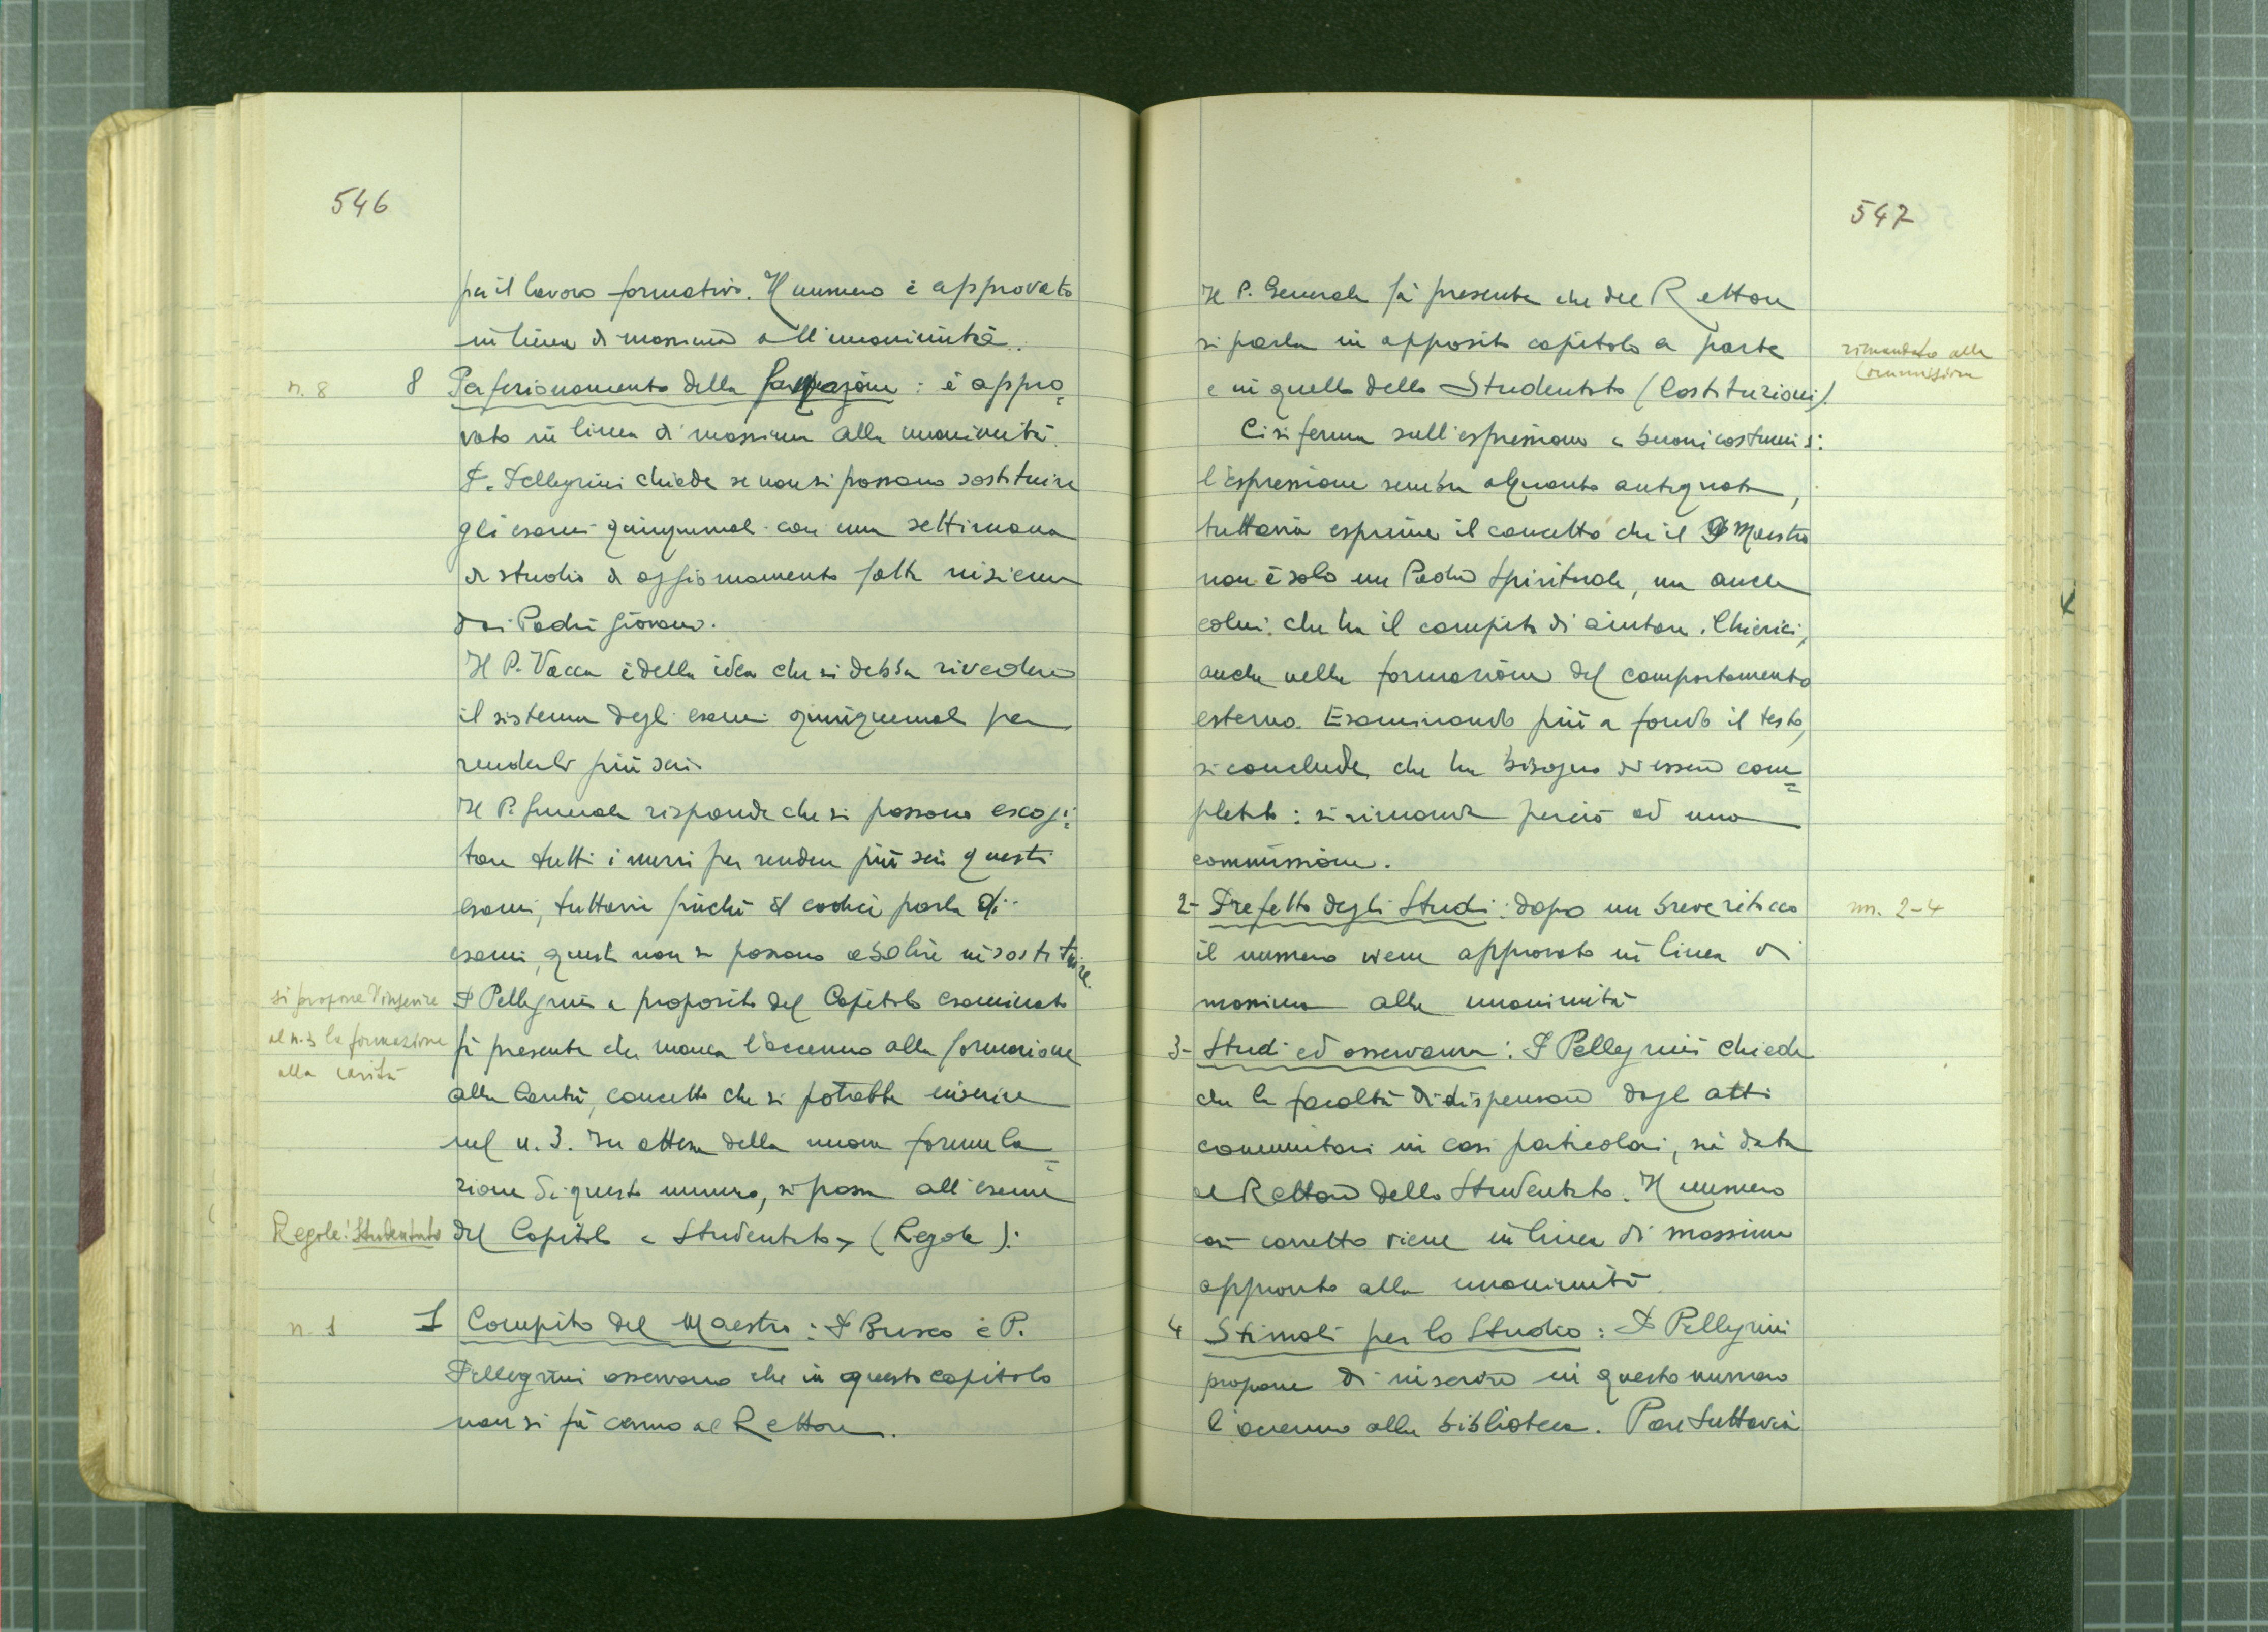 546
per il lavoro formativo. Il numero è approvato
in linea di massima all'unanimità.
n. 8
8 Perfezionamento della formazione: è appro=
vato in linea di massima alla unanimità.
P. Pellegrini chiede se non si possano sostituire
gli esami quinquennali con una settimana
di studio di aggiornamento fatta insieme
dai Padri giovani.
Il P. Vacca è della idea che si debba rivedere
il sistema degli esami quinquennali per
renderli più seri.
Il P. Generale risponde che si possono escogi=
tare tutti i mezzi per rendere più seri questi
esami, tuttavia finché il codice parla di
esami, questi non si possono abolire né sostituire.
si propone d'inserire
al n. 3 la formazione
alla carità
P Pellegrini a proposito del Capitolo esaminato
fà presente che manca l'accenno alla formazione
alla Carità, concetto che si potrebbe inserire
nel n. 3. In attesa della nuova formula=
zione di questo numero, si passa all'esame
Regole: Studentato
del Capitolo « Studentato » (Regole):
n. 1
1 Compito del Maestro: P Busco e P.
Pellegrini osservano che in questo capitolo
non si fà cenno al Rettore.
547
Il P. Generale fà presente che del Rettore
si parla in apposito capitolo a parte
e in quello dello Studentato (Costituzioni).
rimandato alla
Commissione
Ci si ferma sull'espressione « buoni costumi »:
l'espressione sembra alquanto antiquata,
tuttavia esprime il concetto che il P Maestro
non è solo un Padre Spirituale, ma anche
colui che ha il compito di aiutare i Chierici,
anche nella formazione del comportamento
esterno. Esaminando più a fondo il testo,
si conclude che ha bisogno di essere com=
pletato: si rimanda perciò ad una
commissione.
nn. 2-4
2- Prefetto degli Studi: dopo un breve ritocco
il numero viene approvato in linea di
massima alla unanimità
3- Studi ed osservanza: P Pellegrini chiede
che la facoltà di dispensare dagli atti
comunitari in casi particolari, sia data
al Rettore dello Studentato. Il numero
così corretto viene in linea di massima
approvato alla unanimità.
4 Stimoli per lo Studio: P Pellegrini
propone di inserire in questo numero
l'accenno alla biblioteca. Pare tuttavia